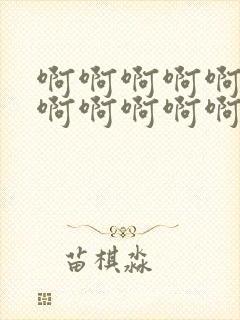 啊啊啊啊啊
啊啊啊啊啊
苗棋淼